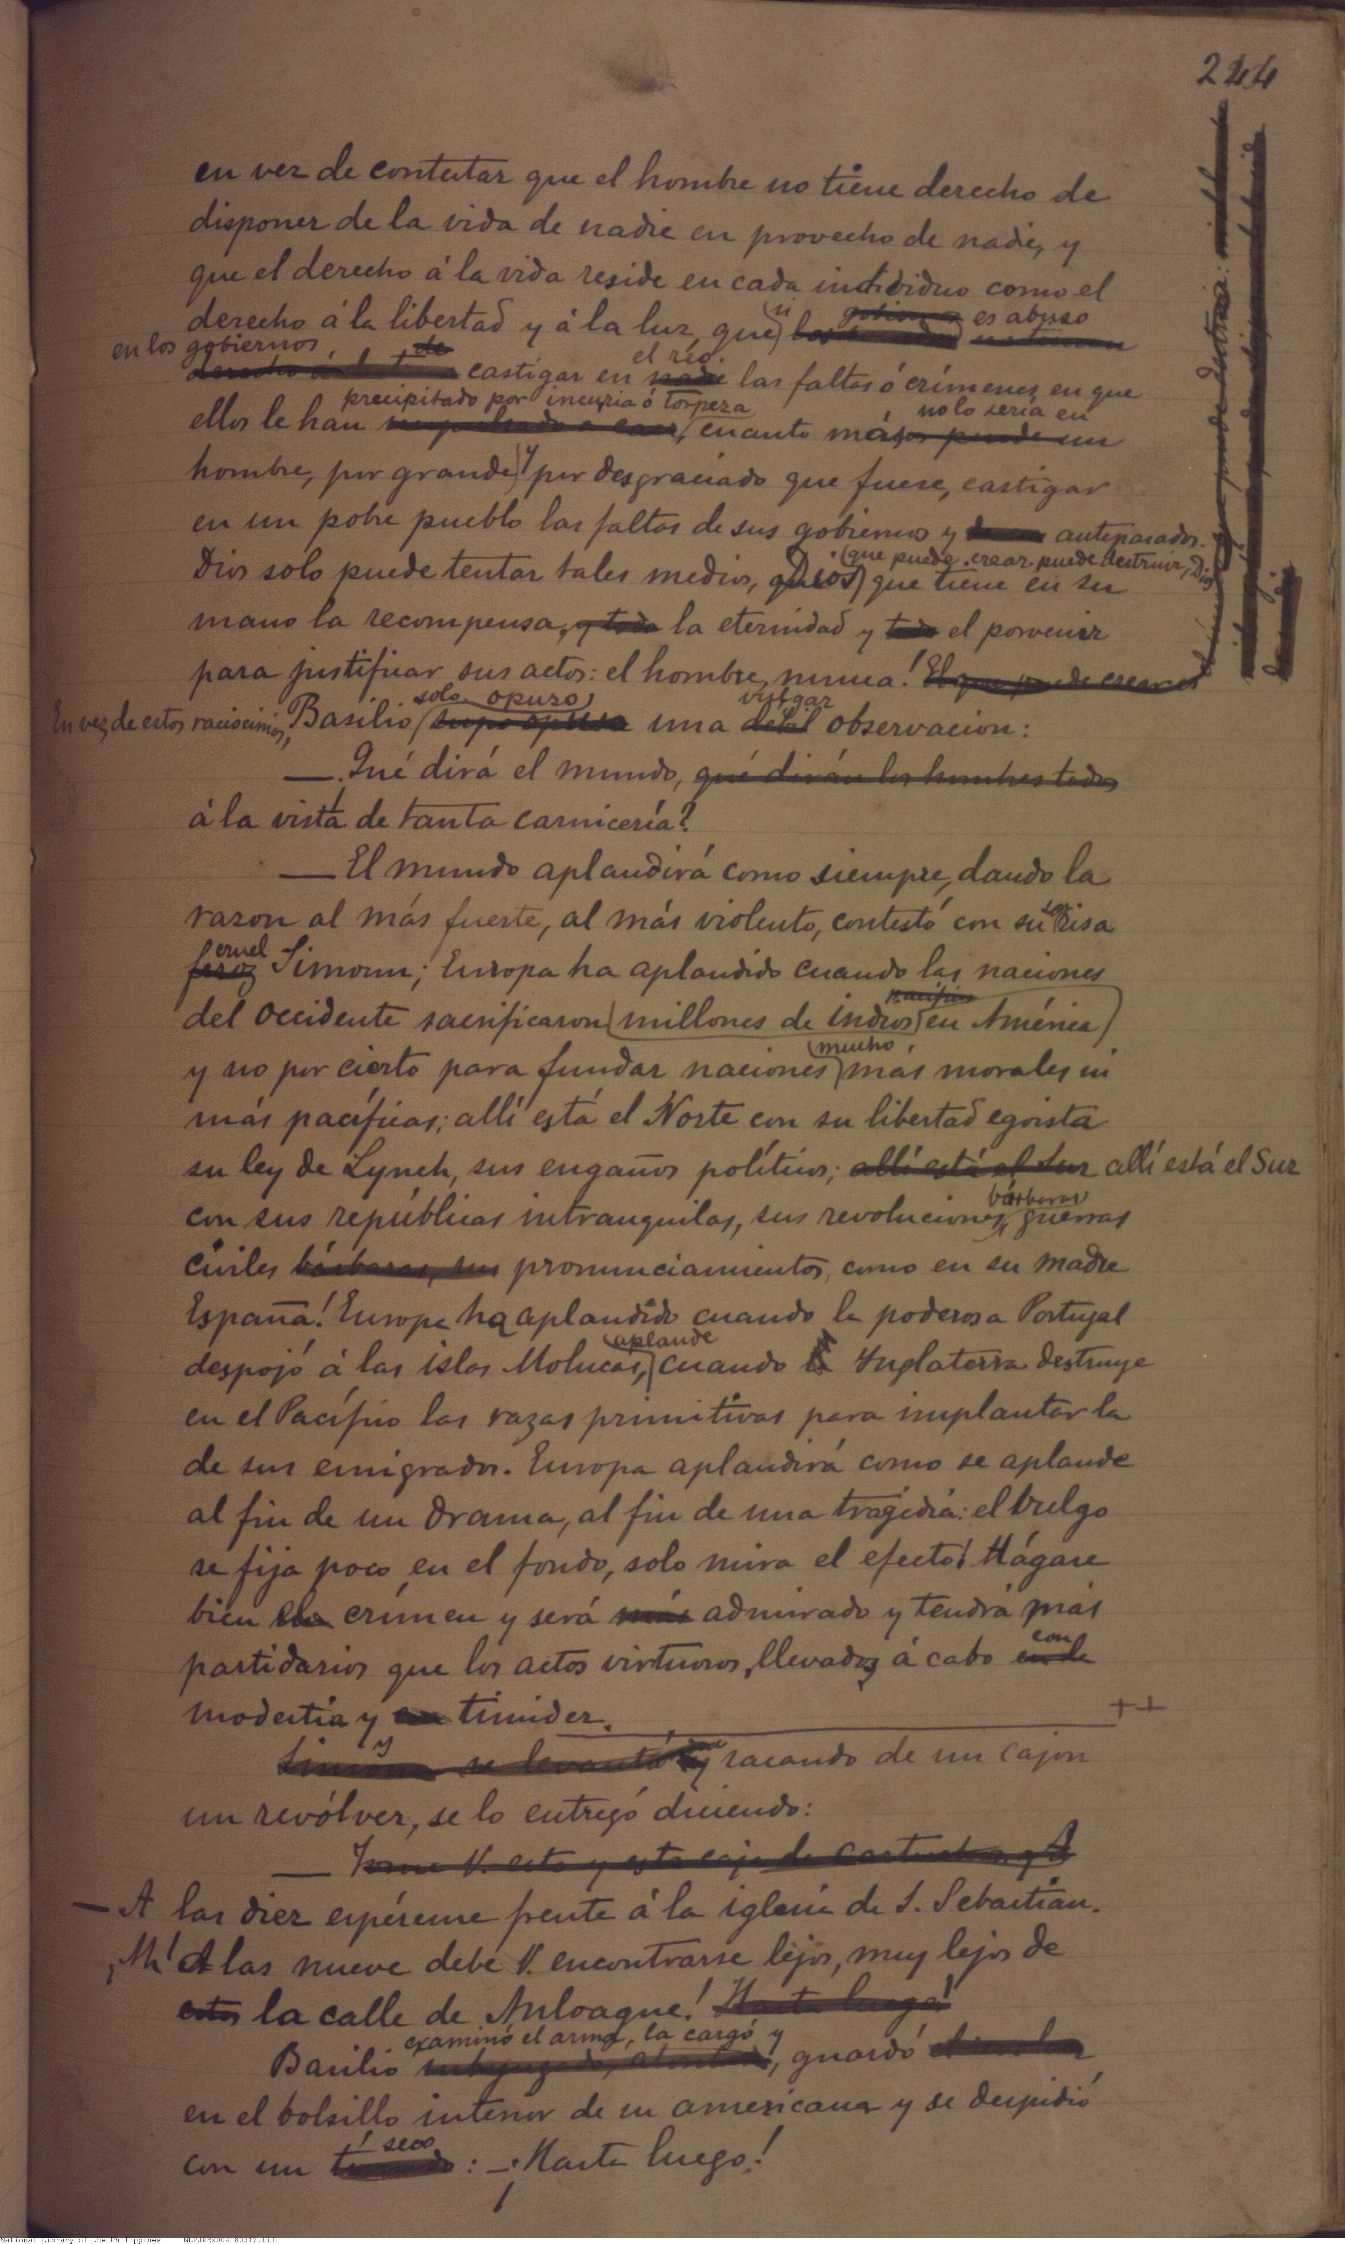 244
en vez de contestar que el hombre no tiene derecho de
disponer de la vida de nadie en provecho de nadie, y
que el derecho á la vida reside en cada individuo como el
derecho á la libertad y á la luz, que si es abuso
en los gobiernos
de castigar en el réo nadie las faltas ó crímenes en que
precipitado por incuria ó torpeza
ellos le han cuanto más no lo sería en un
hombre, por grande y por desgraciado que fuere, castigar
en un pobre pueblo las faltas de sus gobiernos y antepasados.
Dios solo puede tentar tales medios, Dios que puede crear puede destruir, Dios que tiene en su
mano la recompensa, y toda la eternidad y todo el porvenir
para justificar sus actos: el hombre, nunca! El que puede crear es
En vez de estos raciocinios, Basilio solo opuso supo opuso una vulgar debil observacion:
— ¿Qué dirá el mundo, qué dirán los hombres todos
á la vista de tanta carnicería?
— El mundo aplaudirá como siempre, dando la
razon al más fuerte, al más violento, contestó con su son risa
cruel feroz Simoun; Europa ha aplaudido cuando las naciones
del Occidente sacrificaron millones de indios pacíficos en América
y no por cierto para fundar naciones mucho más morales ni
más pacíficas; allí está el Norte con su libertad egoista
su ley de Lynch, sus engaños políticos; allí está el Sur allí está el Sur
con sus repúblicas intranquilas, sus revoluciones bárbaras, guerras
civiles bárbaras, sus pronunciamientos, como en su madre
España! Europa ha aplaudido cuando la poderosa Portugal
despojó á las islas Molucas, aplaude cuando Inglaterra destruye
en el Pacífico las razas primitivas para implantar la
de sus emigrados. Europa aplaudirá como se aplaude
al fin de un drama, al fin de una tragedia: el vulgo
se fija poco en el fondo, solo mira el efecto! Hágase
bien el crímen y será más admirado y tendrá más
partidarios que los actos virtuosos, llevados á cabo con en la
modestia y en timidez. ++
Simoun se levantó y sacando de un cajon
un revólver, se lo entregó diciendo:
— Tome V. esto y esta caja de cartuchos y A
— A las diez espéreme frente á la iglesia de S. Sebastian.
¡Ah! A las nueve debe V. encontrarse lejos, muy lejos de
esta la calle de Anloague! Hasta luego!
Basilio examinó el arma, la cargó y guardó
en el bolsillo interior de su americana y se despidió
con un seco: — ¡Hasta luego!